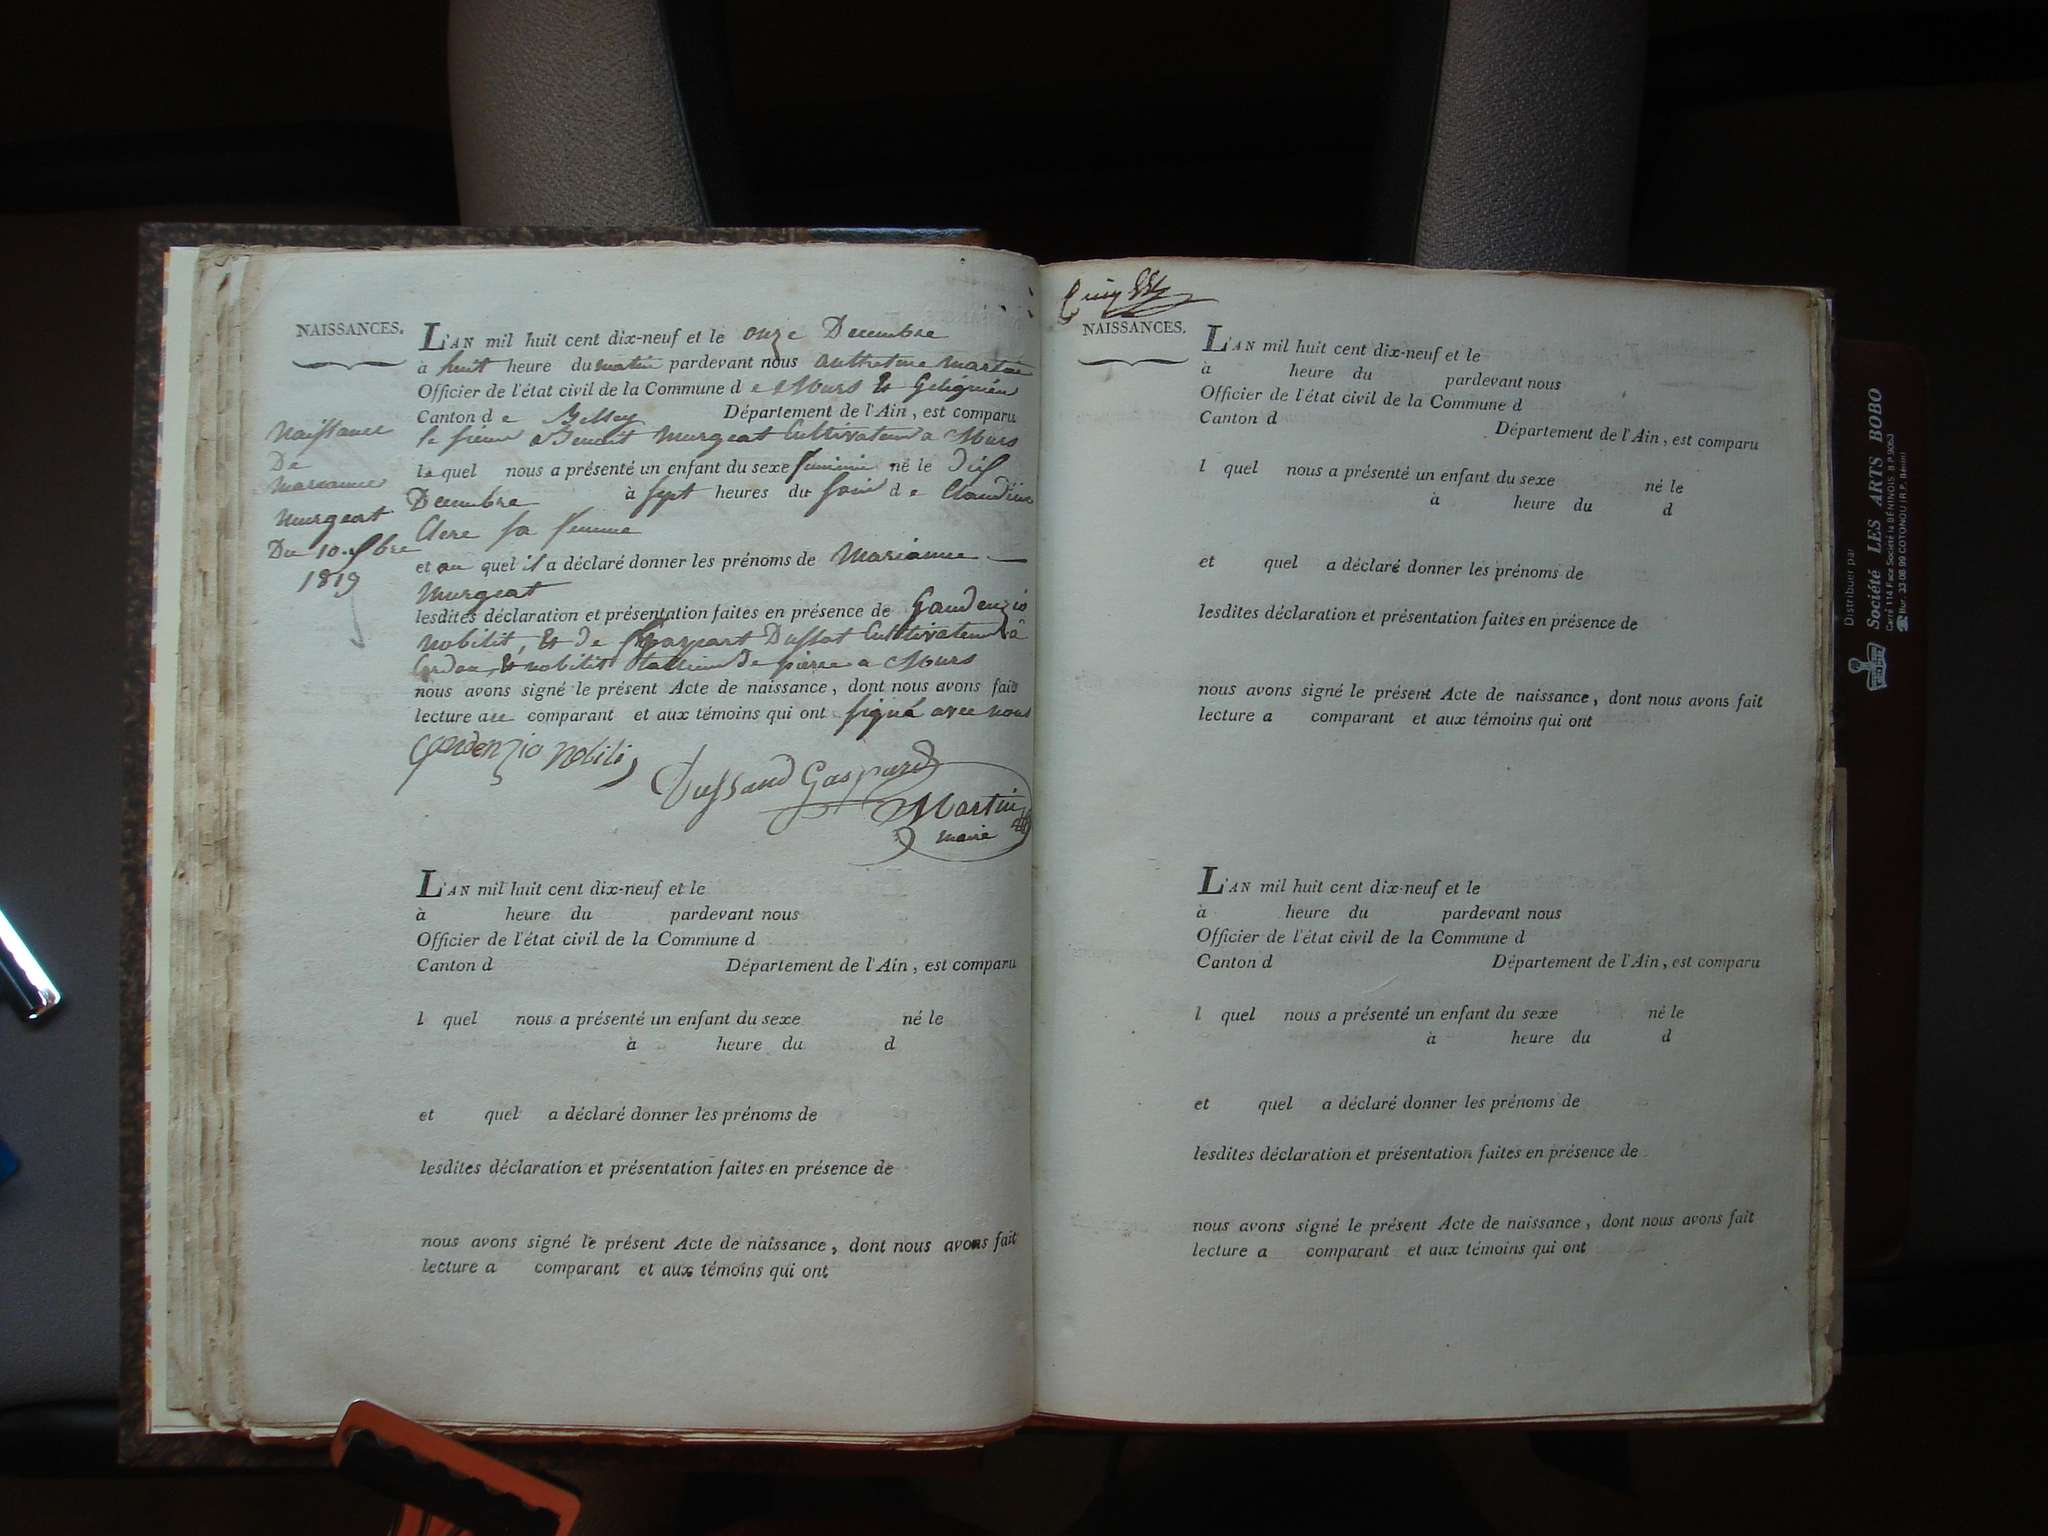 NAISSANCES.
L'AN mil huit cent dix-neuf et le onze Decembre
a huit heure du matin pardevant nous anthelme martin
Officier de l'état civil de la Commune d e Murs Et Geligneu
Canton d e Belley Département de l'Ain, est comparu
le sieur Benoit murgeat Cultivateur a Murs
le quel nous a présenté un enfant du sexe feminin né le dix
Decembre à sept heures du soir d e Claudine
Clere sa femme
et au quel il a déclaré donner les prénoms de Marianne
Murgeat
lesdites déclaration et présentation faites en présence de Gaudenzio
nobilit, Et de Gaspart Dussat Cultivateur à
Cordon, Et nobilit tailleur de pierre a Murs
nous avons signé le présent Acte de naissance, dont nous avons fait
lecture au comparant et aux témoins qui ont signé avec nous
Naissance
De
Marianne
Murgeat
Du 10 Xbre
1819
Gaudenzio Nobili
Dussaud Gaspard
Martin
maire
L'AN mil huit cent dix-neuf et le
à heure du pardevant nous
Officier de l'état civil de la Commune d
Canton d Département de l'Ain, est comparu
l quel nous a présenté un enfant du sexe né le
à heure du d
et quel a déclaré donner les prénoms de
lesdites déclaration et présentation faites en présence de
nous avons signé le présent Acte de naissance, dont nous avons fait
lecture a comparant et aux témoins qui ont
NAISSANCES.
L'AN mil huit cent dix-neuf et le
à heure du pardevant nous
Officier de l'état civil de la Commune d
Canton d
Département de l'Ain, est comparu
l quel nous a présenté un enfant du sexe né le
à heure du d
et quel a déclaré donner les prénoms de
lesdites déclaration et présentation faites en présence de
nous avons signé le présent Acte de naissance, dont nous avons fait
lecture a comparant et aux témoins qui ont
L'AN mil huit cent dix-neuf et le
à heure du pardevant nous
Officier de l'état civil de la Commune d
Canton d Département de l'Ain, est comparu
l quel nous a présenté un enfant du sexe né le
à heure du d
et quel a déclaré donner les prénoms de
lesdites déclaration et présentation faites en présence de
nous avons signé le présent Acte de naissance, dont nous avons fait
lecture a comparant et aux témoins qui ont
Distribuer par
Société LES ARTS BOBO
Carré 114 Face Société la BÉNINOIS B.P. 9063
Bur. 33 08 99 COTONOU (R.P. Bénin)